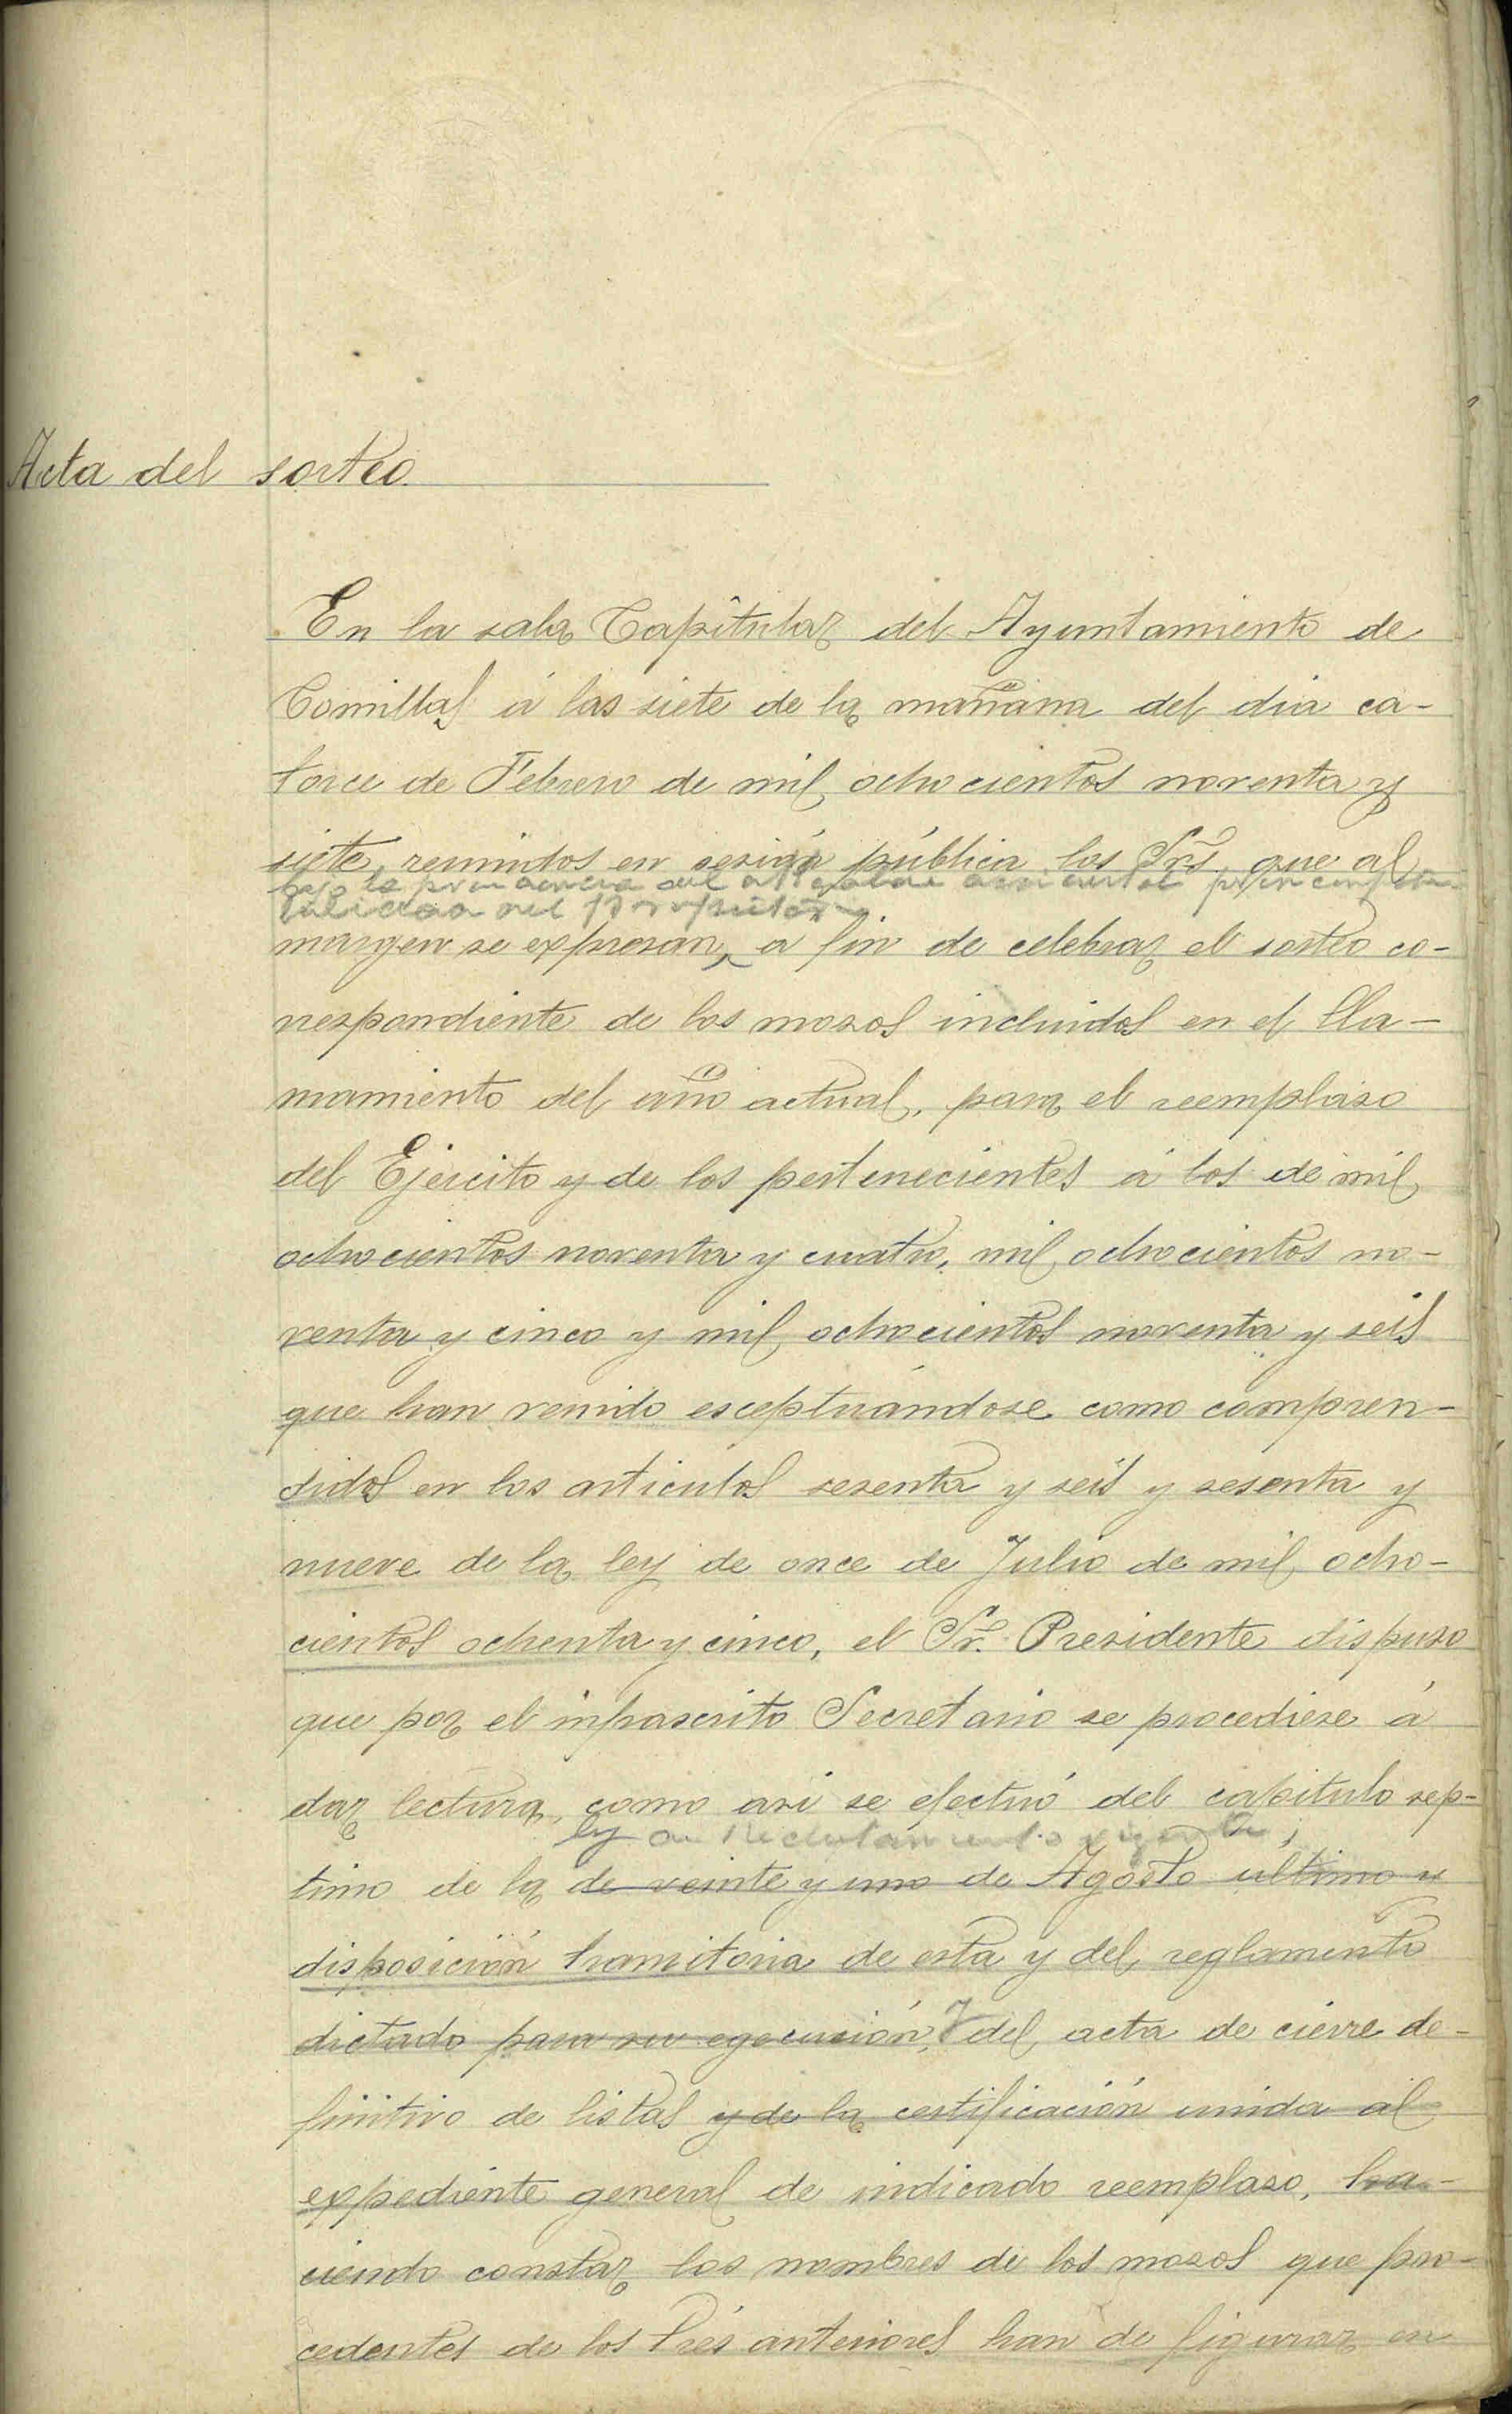 Acta del sorteo.
En la sala Capitular del Ayuntamiento de
Comillas á las siete de la mañana del dia ca-
torce de Febrero de mil ochocientos noventa y
siete, reunidos en sesión pública los Srs. que al
bajo la del accidental
del propietario
margen se expresan, a fin de celebrar el sorteo co-
rrespondiente de los mozos incluidos en el lla-
mamiento del año actual, para el reemplaso
del Ejercito y de los pertenecientes á los de mil
ochocientos noventa y cuatro, mil ochocientos no-
venta y cinco y mil ochocientos noventa y seis
que han venido esceptuándose como compren-
didos en los articulos sesenta y seis y sesenta y
nueve de la ley de once de Julio de mil ocho-
cientos ochenta y cinco, el Sr. Presidente dispuso
que por el infrascrito Secretario se procediese á
dar lectura, como asi se efectuó del capitulo sep-
ley de Reclutamiento vigente,
timo de la de veinte y uno de Agosto ultimo y
disposición transitoria de esta y del reglamento
dictado para su egecución, y del acta de cierre de-
finitivo de listas y de la certificación unida al
expediente general de indicado reemplaso, ha-
ciendo constar los nombres de los mozos que pro-
cedentes de los tres anteriores han de figurar en